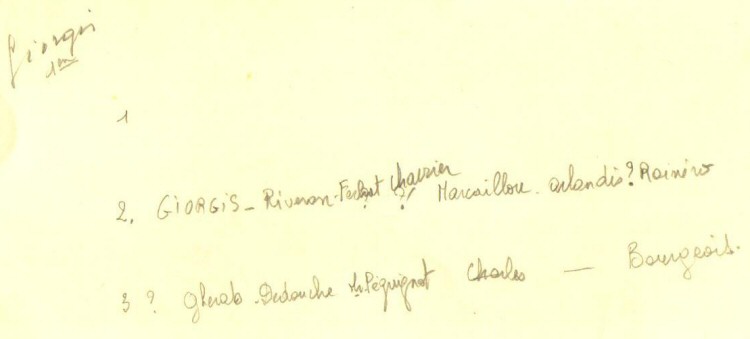 Giorgis
1m
1
2. GIORGIS - Riveron - Chauzier Marcaillou. orlandis? Rainero
3 ? Gherab - Dedouche Mr Péquignot Charles — Bourgeois.